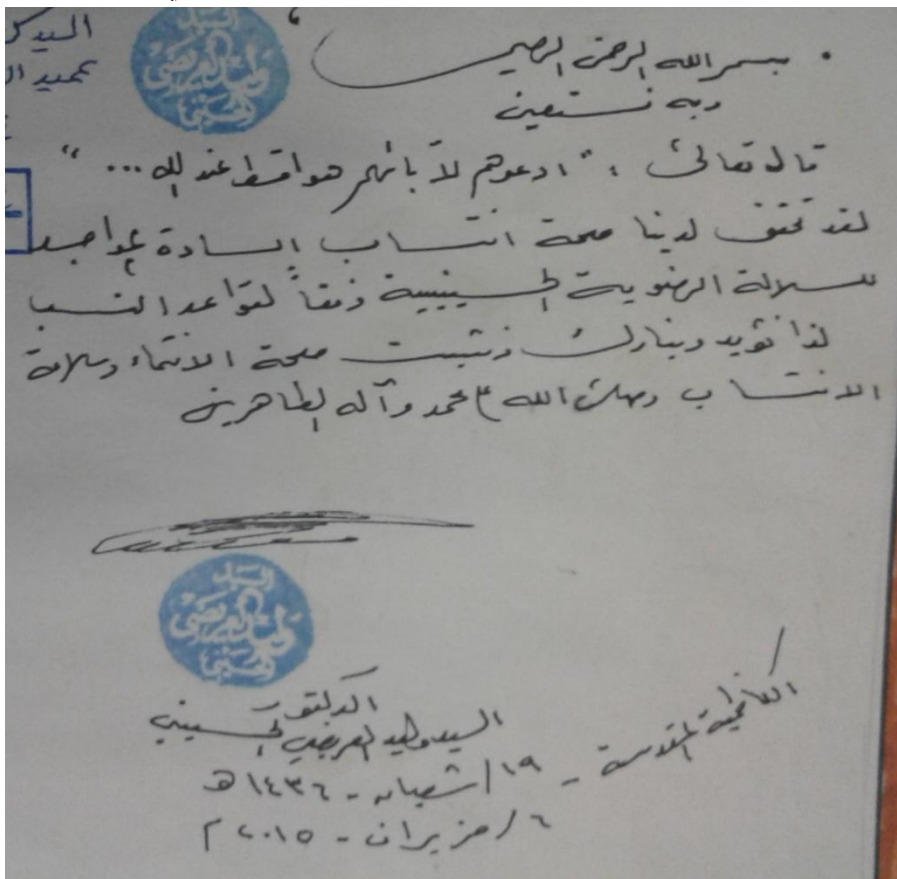 السيد
عميد
بسم الله الرحمن الرحيم
وبه نستعين
قال تعالى : " ادعوهم لآبائهم هو اقسط عند الله ... "
لقد تحقق لدينا صحة انتساب السادة
للسلالة الرضوية الحسينية وفقاً لقواعد النسب
لذا نؤيد ونبارك ونثبت صحة الانتماء وسلامة
الانتساب وصلى الله على محمد وآله الطاهرين
السيد
وليد العريضي
الحسيني
الدكتور
السيد وليد العريضي الحسيني
الكاظمية المقدسة - ١٩ / شعبان - ١٤٣٦ هـ
٦ / حزيران - ٢٠١٥ م